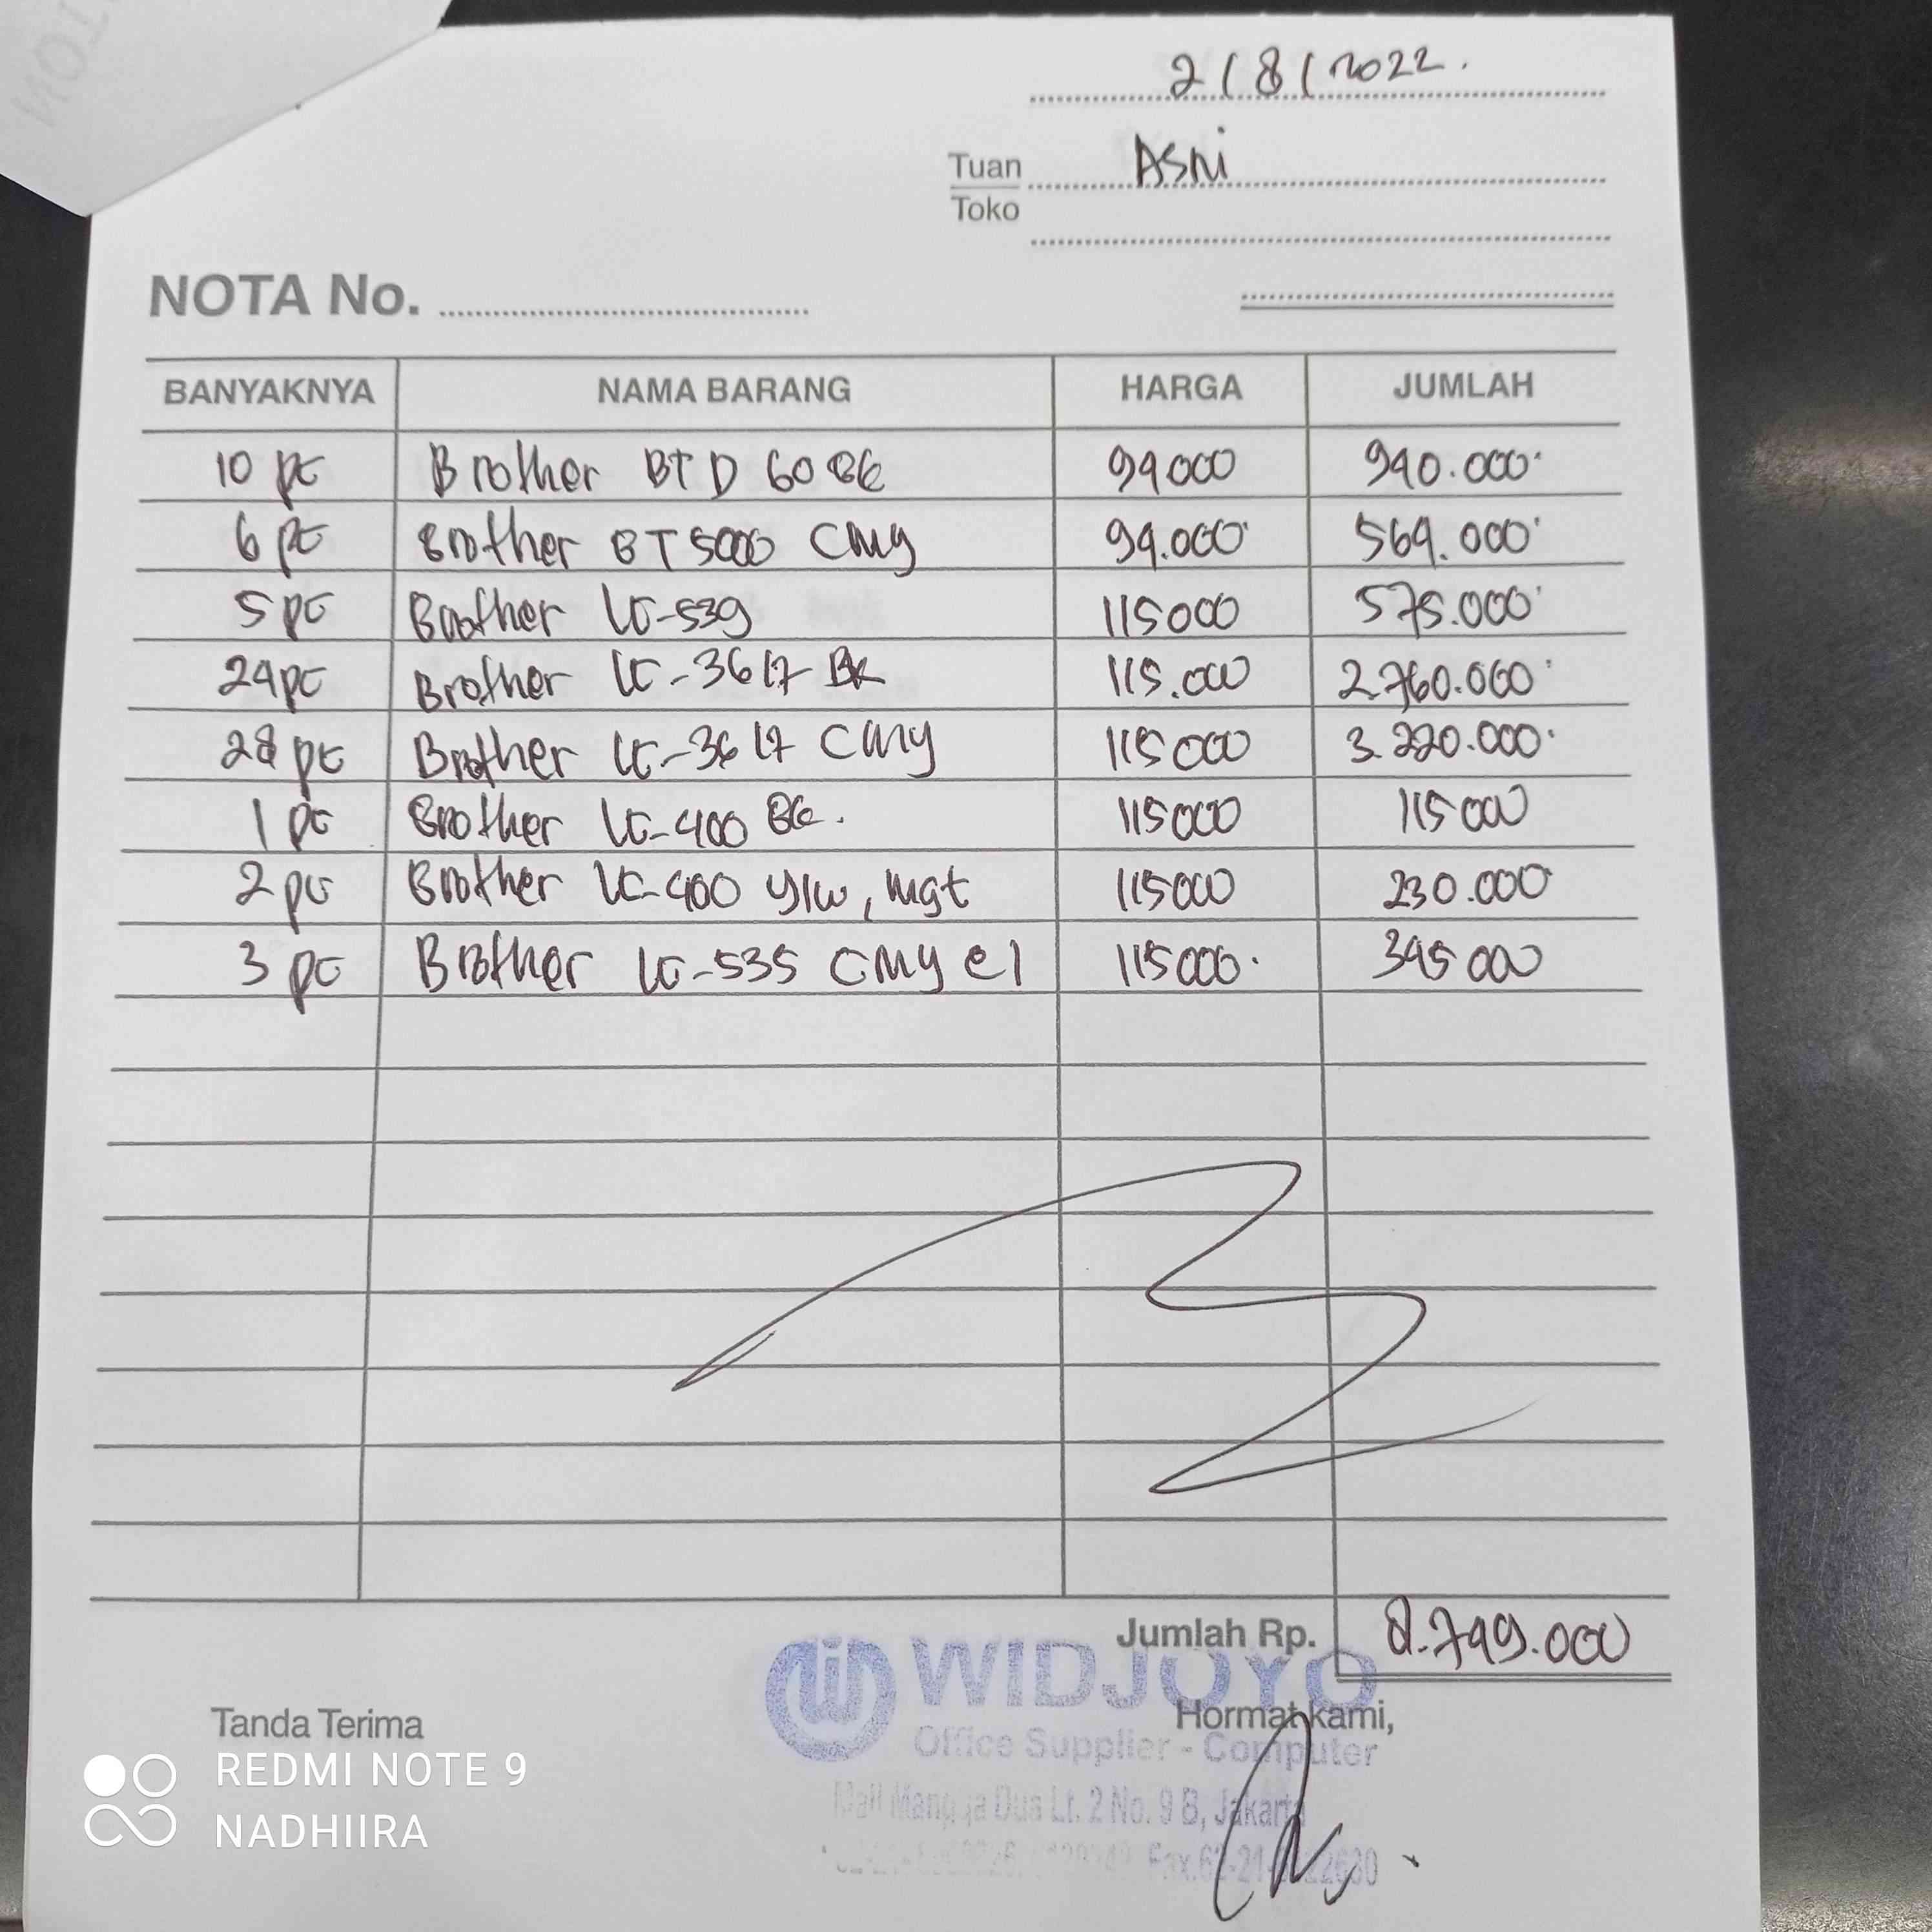 2/8/2022.
Tuan Asni
Toko
NOTA No.
BANYAKNYA NAMA BARANG HARGA JUMLAH
10 pc Brother BTD 60 BK 94000 940.000
6 pc Brother BT 5000 CMY 94.000 564.000
5 pc Brother LC-539 115000 575.000
24 pc Brother LC-3617 BK 115.000 2.760.000
28 pc Brother LC-3617 CMY 115000 3.220.000
1 pc Brother LC-400 BK. 115000 115000
2 pc Brother LC-400 ylw, mgt 115000 230.000
3 pc Brother LC-535 CMY @1 115000 345000
Jumlah Rp. 8.749.000
WIDJOYO
Tanda Terima Hormat kami,
Office Supplier - Computer
Mall Mangga Dua Lt. 2 No. 9 B, Jakarta
REDMI NOTE 9
NADHIIRA